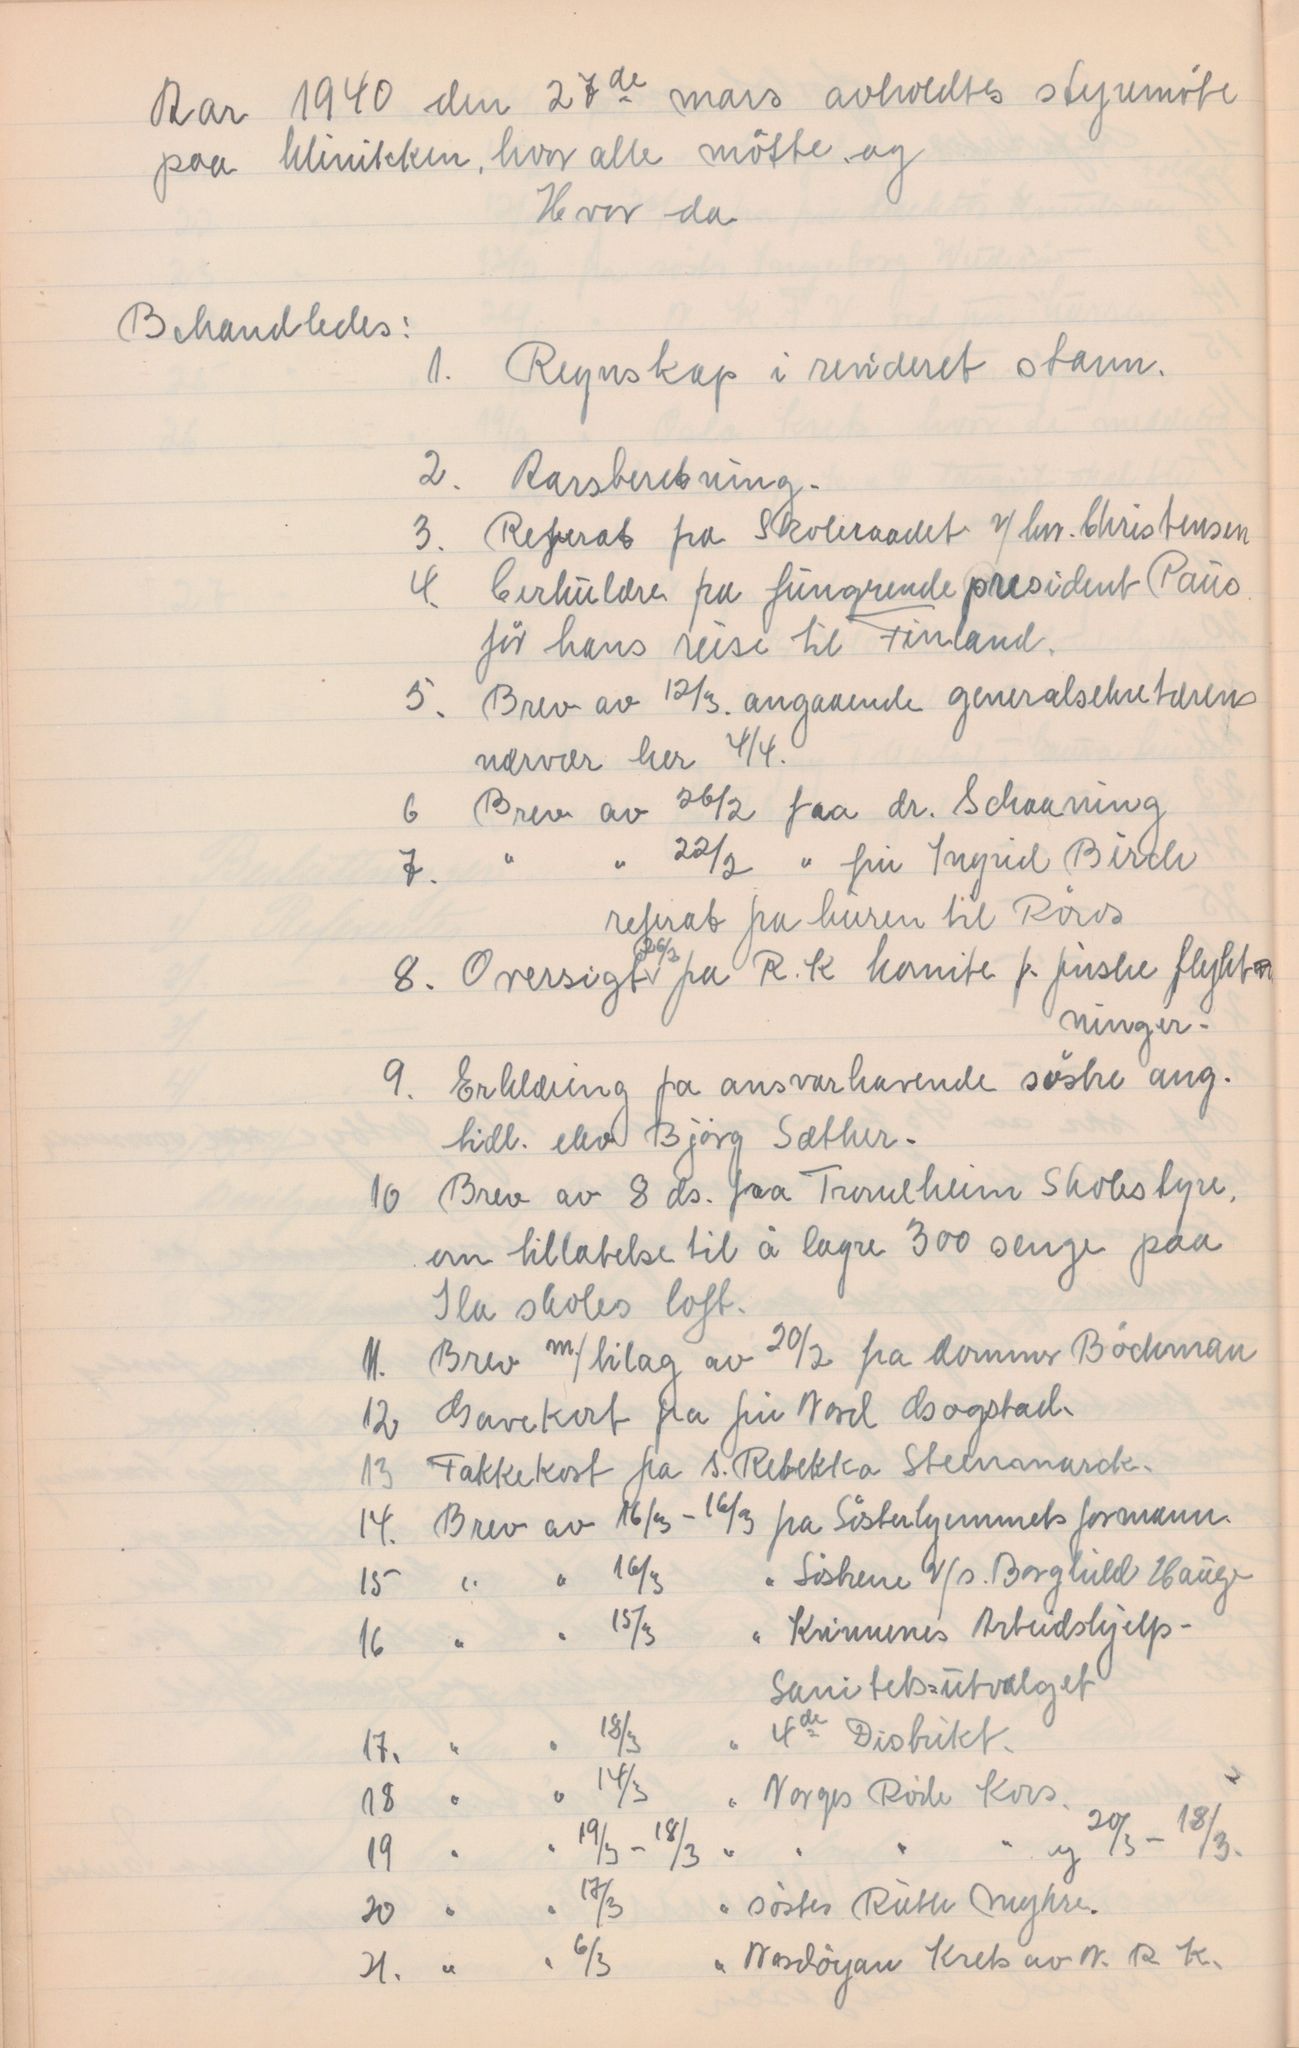 Aar 1940 den 27de mars avholdtes styremöte
paa klinikken, hvor alle mötte og
Hvor da
Behandledes:
1. Regnskap i revideret stann.
2. Aarsberetning.
3. Referat fra Skoleraadet v/ hr. Christensen
4. Cirkulære fra fungerende president Paus
för hans reise til Finland.
5. Brev av 12/3. angaaende generalsekretærens
nærvær her 4/4.
6 Brev av 26/2 fra dr. Schaaning
7. " " 22/2 " fru Ingrid Birch
referat fra turen til Röros
8. Oversigt 26/3 fra R. K komite f. finske flykt
ninger.
9. Erklæring fra ansvarhavende söstre ang.
tidl. elev Björg Sæther.
10 Brev av 8 ds. fra Trondheim Skolestyre,
om tillatelse til å lagre 300 senge paa
Ila skoles loft.
11. Brev m/ bilag av 20/2 fra dommer Böckman
12 Gavekort fra fru Nord Gogstad.
13 Takkekort fra s. Rebekka Steenmarck.
14. Brev av 16/3 - 16/3 fra Sösterhjemmets formann.
15 " " 16/3 " Söstrene v/ s. Borghild Hauge
16 " " 15/3 " Kvinnenes Arbeidshjelp-
Sanitets=utvalget
17. " " 18/3 " 4de Distrikt.
18 " " 14/3 " Norges Röde Kors.
19 " " 19/3 - 18/3 " " " " og 20/3 - 18/3.
20 " " 17/3 " söster Ruth Myhre.
21. " " 6/3 " Nordöyan Krets av N. R. K.